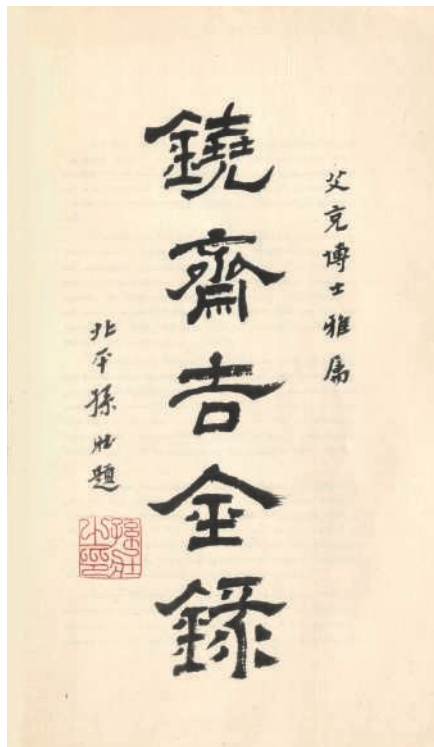 艾克博士雅属
鐃齋吉金錄
北平孫壯題
孫壯之印